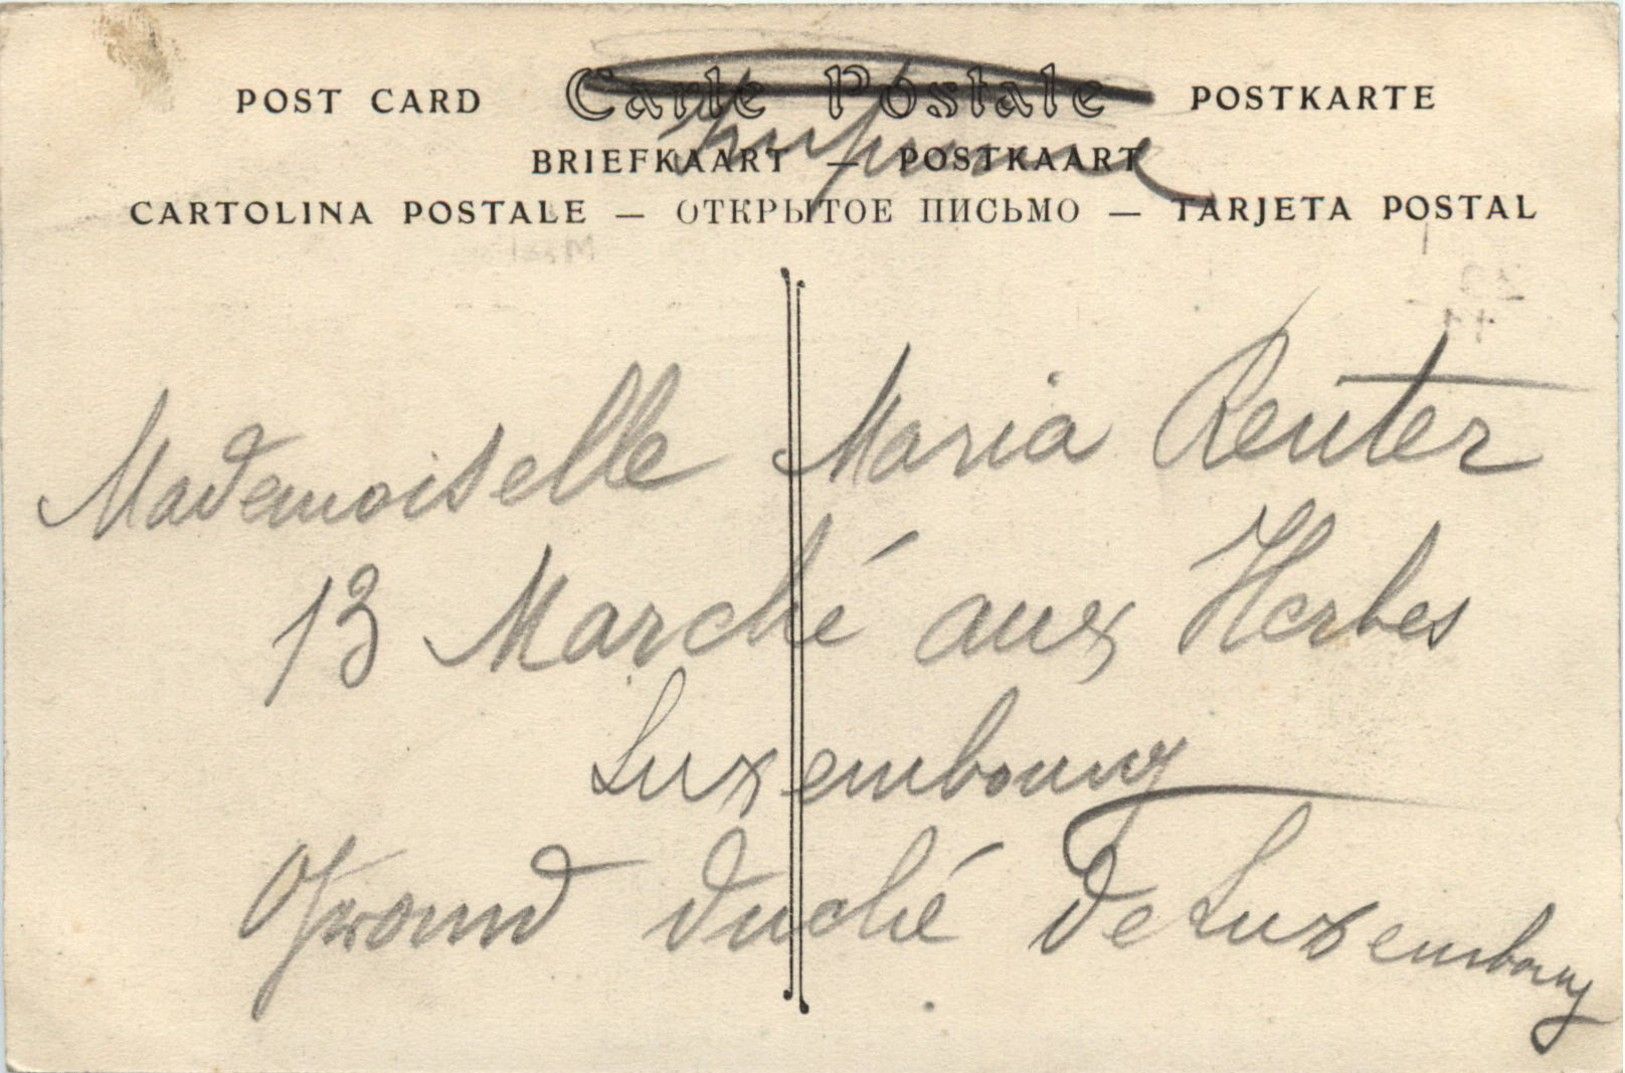 POST CARD Carte Postale POSTKARTE
Imprimé
BRIEFKAART — POSTKAART
CARTOLINA POSTALE — ОТКРЫТОЕ ПИСЬМО — TARJETA POSTAL
Mademoiselle Maria Reuter
13 Marché aux Herbes
Luxembourg
Grand Duché de Luxembourg